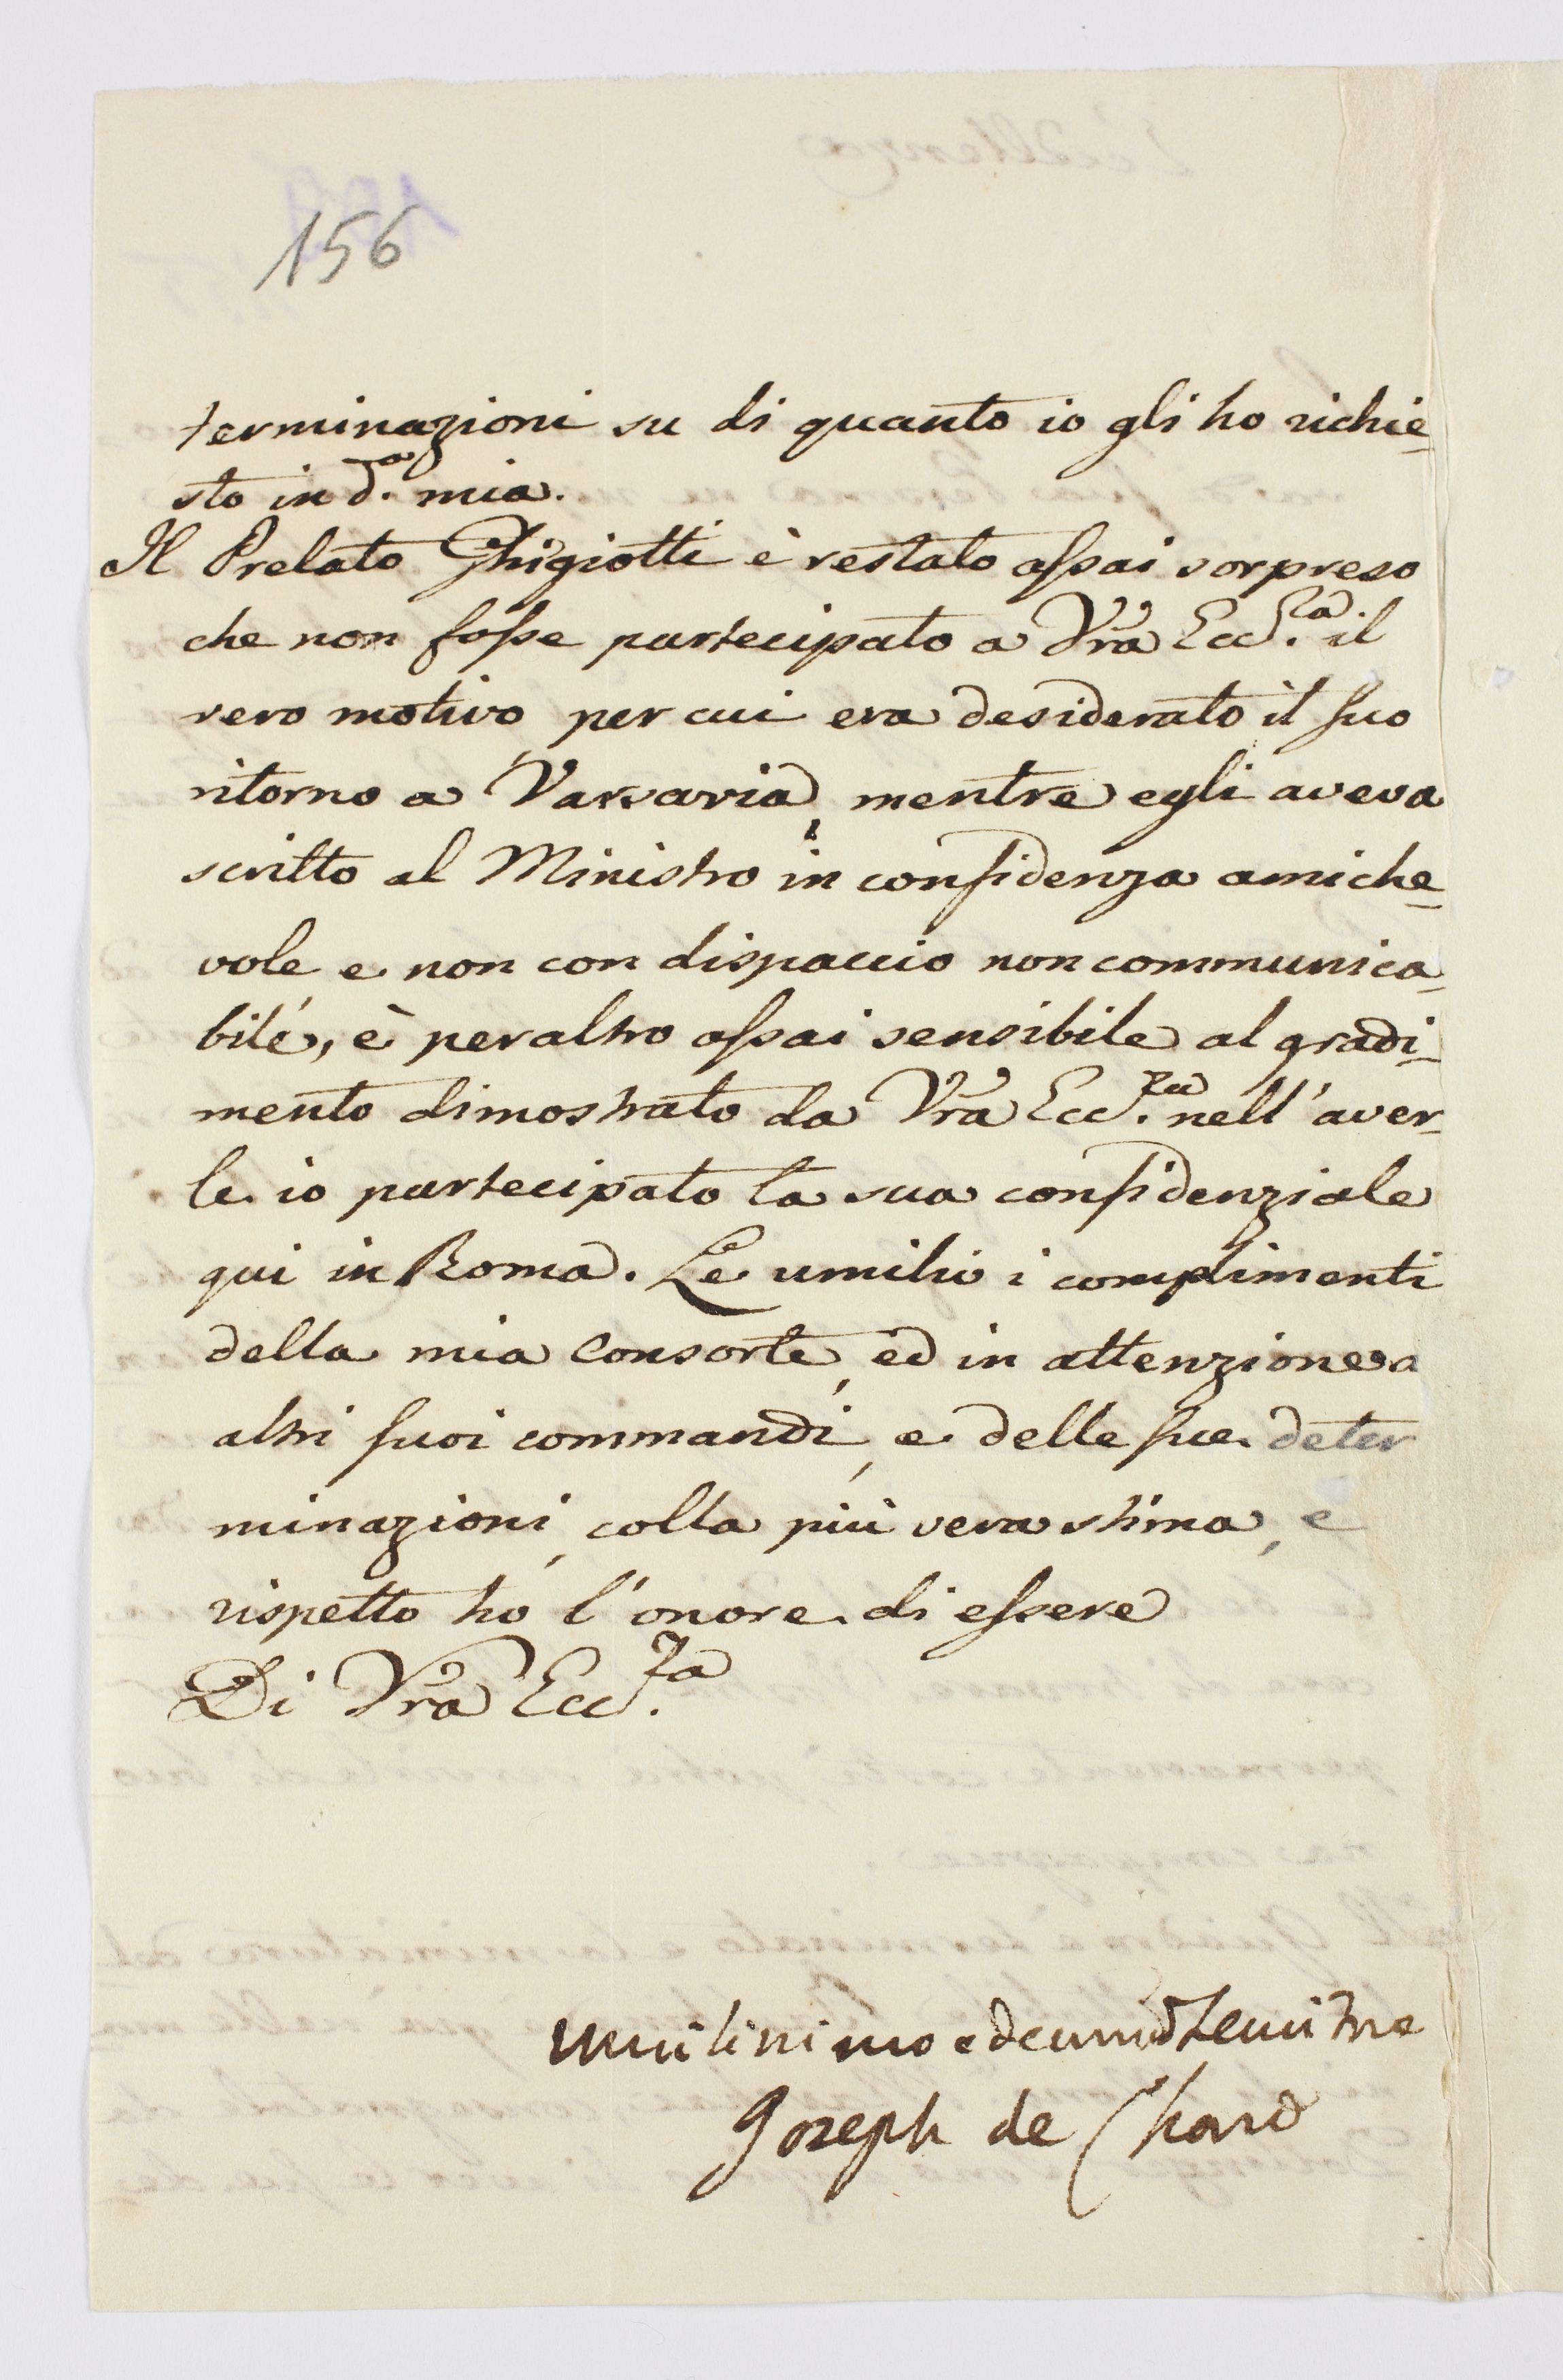 156
terminazioni su di quanto io gli ho richie-
sto in d.a mia.
Il Prelato Ghigiotti è restato assai sorpreso
che non fosse partecipato a Vra Ecc.za il
vero motivo per cui era desiderato il suo
ritorno a Varsavia, mentre egli aveva
scritto al Ministro in confidenza amiche-
vole e non con dispaccio non communica-
bile, è peraltro assai sensibile al gradi-
mento dimostrato da Vra Ecc.za nell'aver-
le io partecipato la sua confidenziale
qui in Roma. Le umilio i complimenti
della mia Consorte, ed in attenzione a
altri suoi commandi, e delle sue deter
minazioni, colla più vera stima, e
rispetto ho l'onore di essere
Di Vra Ecc.za
umilissimo e
Joseph de Chard